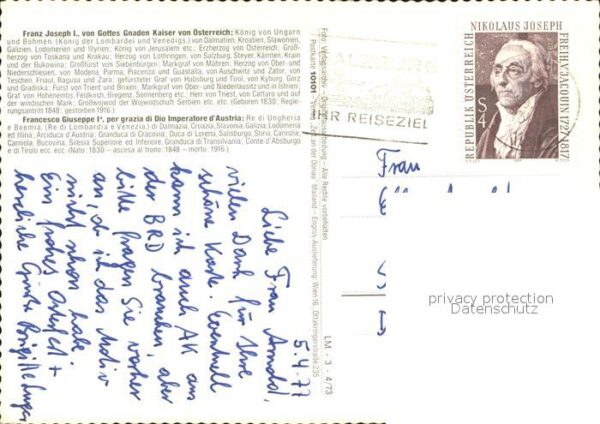 Franz Joseph I., von Gottes Gnaden Kaiser von Österreich: König von Ungarn
und Böhmen, (König der Lombardei und Venedigs,) von Dalmatien, Kroatien, Slawonien,
Galizien, Lodomerien und Illyrien; König von Jerusalem etc.; Erzherzog von Österreich, Groß-
herzog von Toskana und Krakau; Herzog von Lothringen, von Salzburg, Steyer, Kärnten, Krain
und der Bukowina; Großfürst von Siebenbürgen; Markgraf von Mähren; Herzog von Ober- und
Niederschlesien, von Modena, Parma, Piacenza und Guastalla, von Auschwitz und Zator, von
Teschen, Friaul, Ragusa und Zara; gefürsteter Graf von Habsburg und Tirol, von Kyburg, Görz
und Gradiska; Fürst von Trient und Brixen; Markgraf von Ober- und Niederlausitz und in Istrien;
Graf von Hohenembs, Feldkirch, Bregenz, Sonnenberg etc.; Herr von Triest, von Cattaro und auf
der windischen Mark; Großwojwod der Woywodschaft Serbien etc. etc. (Geboren 1830; Regie-
rungsantritt 1848, gestorben 1916.)
Francesco Giuseppe I°. per grazia di Dio Imperatore d'Austria: Re di Ungheria
e Boemia, (Re di Lombardia e Venezia,) di Dalmazia, Croazia, Slavonia, Galizia, Lodomeria
ed Illiria; Arciduca d'Austria; Granduca di Cracovia; Duca di Lorena, Salisburgo, Stiria, Carinzia,
Carniola, Bucovina, Silesia Superiore ed Inferiore, Granduca di Transilvania, Conte d'Absburgo
e di Tirolo ecc. ecc. (Nato: 1830 – ascesa al trono: 1848 – morto: 1916.)
5.4.77
Liebe Frau Arndt,
vielen Dank für Ihre
schöne Karte. Eventuell
kann ich auch AK aus
der BRD brauchen, aber
bitte fragen Sie vorher
an, ob ich das Motiv
nicht schon habe.
Ein frohes Osterfest +
herzliche Grüße Brigitte
Postkarte 10101
LM - 3 - 4/73
SALZBURG
IHR REISEZIEL
NIKOLAUS JOSEPH
FREIH. V. JACQUIN 1727-1817
REPUBLIK ÖSTERREICH
S 4
Frau
privacy protection
Datenschutz